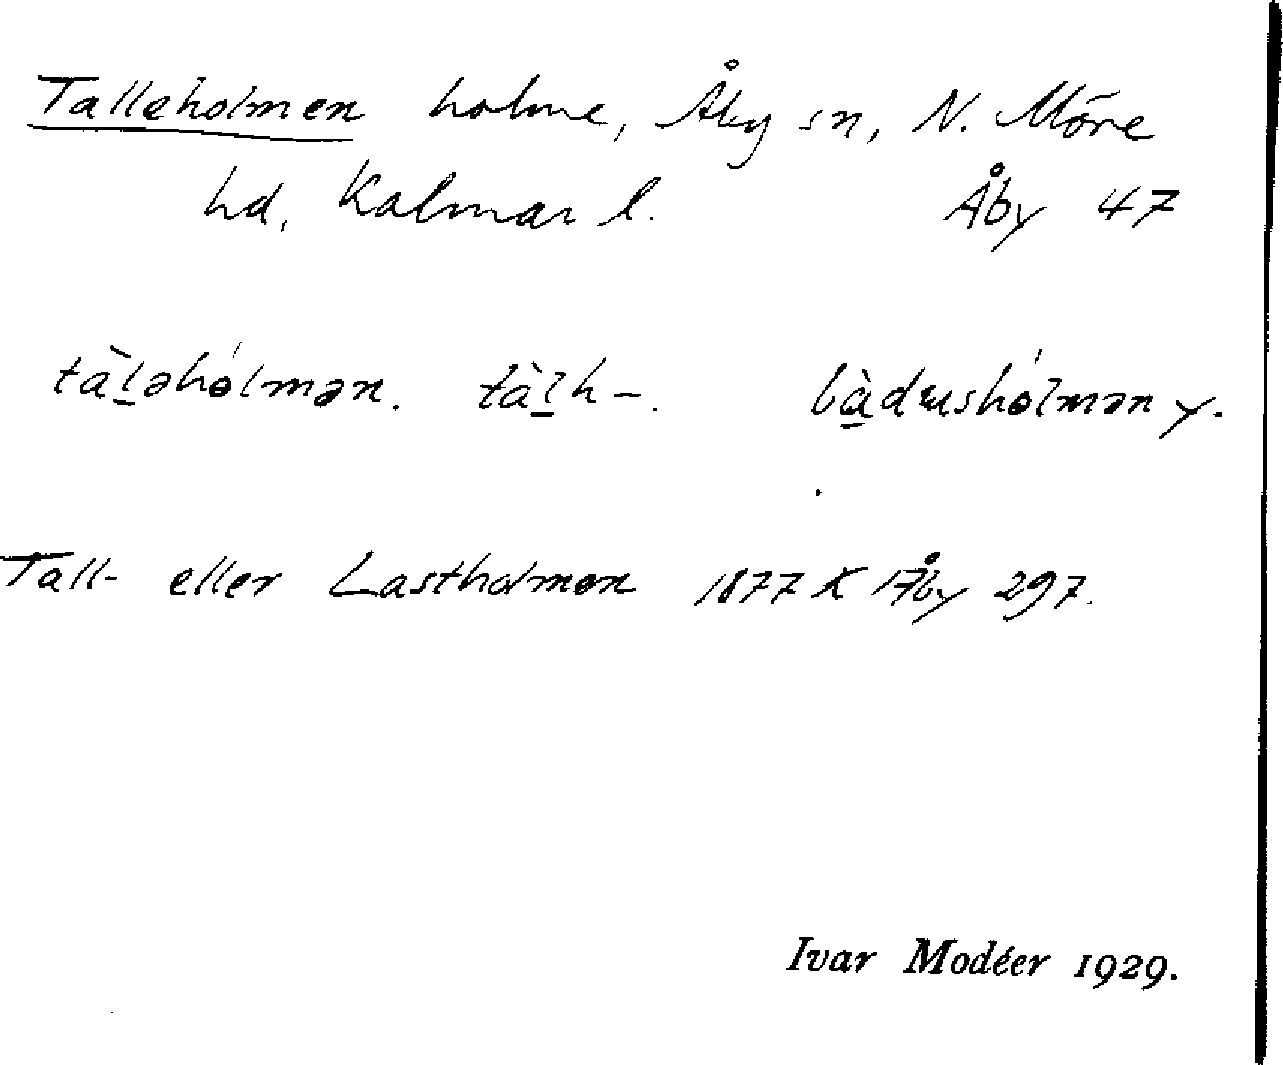 Talleholmen holme, Åby sn, N. Möre
hd, Kalmar l. Åby 47
tàl̲əhólmən. tàl̲h-. bà̲dɯshólmən y.
Tall- eller Lastholmen 1877 K Åby 297.
Ivar Modéer 1929.